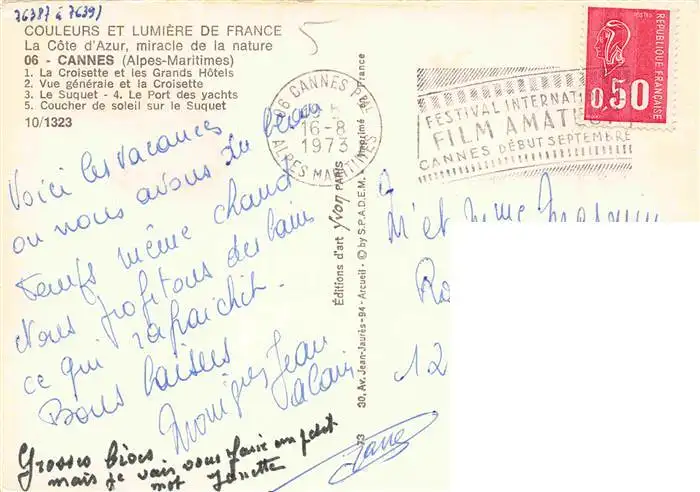 76387 à 76391
COULEURS ET LUMIÈRE DE FRANCE
La Côte d'Azur, miracle de la nature
06 - CANNES (Alpes-Maritimes)
1. La Croisette et les Grands Hôtels
2. Vue générale et la Croisette
3. Le Suquet - 4. Le Port des yachts
5. Coucher de soleil sur le Suquet
10/1323
5
06 CANNES
16-8
1973
ALPES MARITIMES
FESTIVAL INTERNATI
FILM AMATE
CANNES DÉBUT SEPTEMBRE
POSTES
RÉPUBLIQUE FRANÇAISE
0,50
Voici les vacances
ou nous avons du beau
temps même chaud
Nous profitons des bains
ce qui rafraichit.
Bons baisers
Jean
Grosses bises
mais je vais vous faire un petit
mot Janette
Éditions d'art yvon PARIS
Imprimé en France
30, Av. Jean-Jaurès-94 - Arcueil - © by S.P.A.D.E.M.
73
M et Mme
12